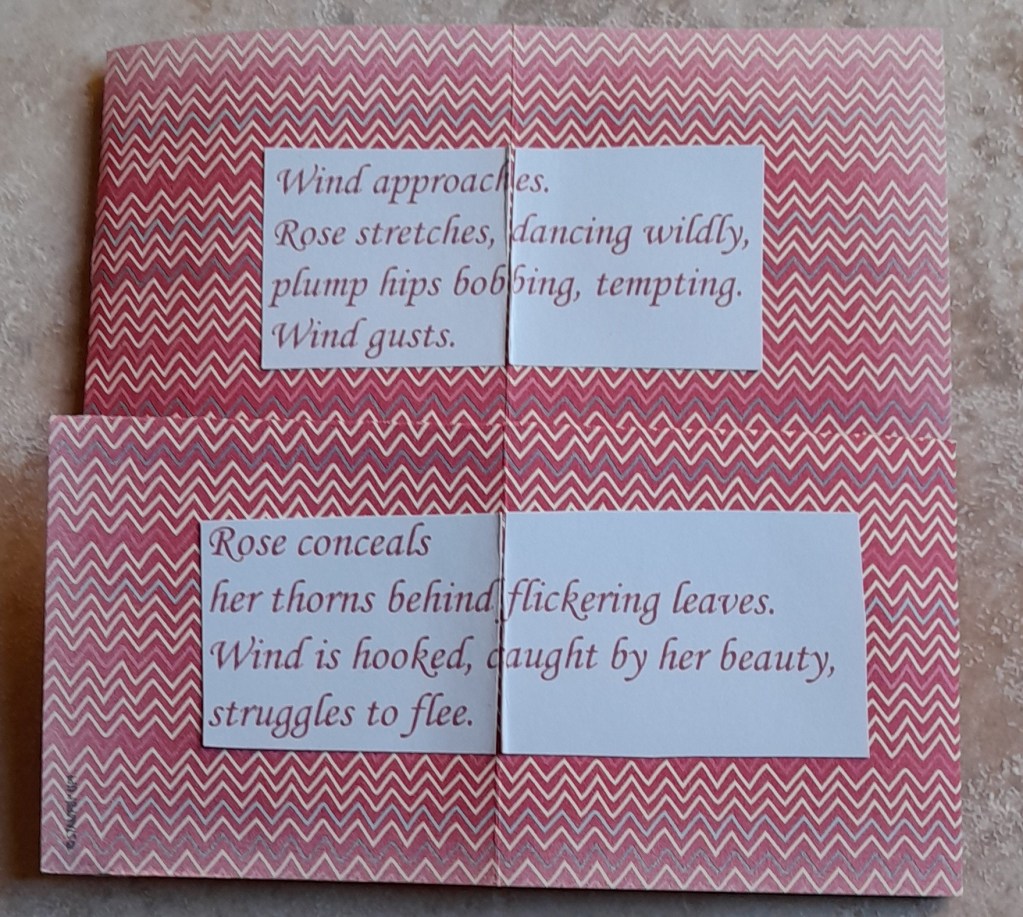 Wind approaches.
Rose stretches, dancing wildly,
plump hips bobbing, tempting.
Wind gusts.
Rose conceals
her thorns behind flickering leaves.
Wind is hooked, caught by her beauty,
struggles to flee.